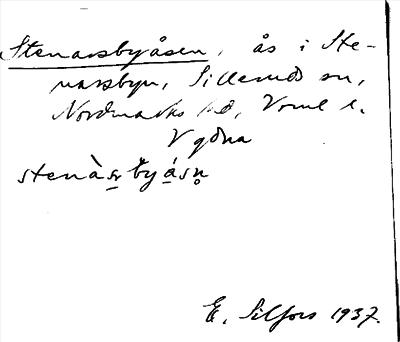 Stenarsbyåsen, ås i Ste-
narsbyn, Sillerud sn,
Nordmarks hd, Vrml l.
stenàr̲s̲byá̲sn̥
E. Silfors 1937.